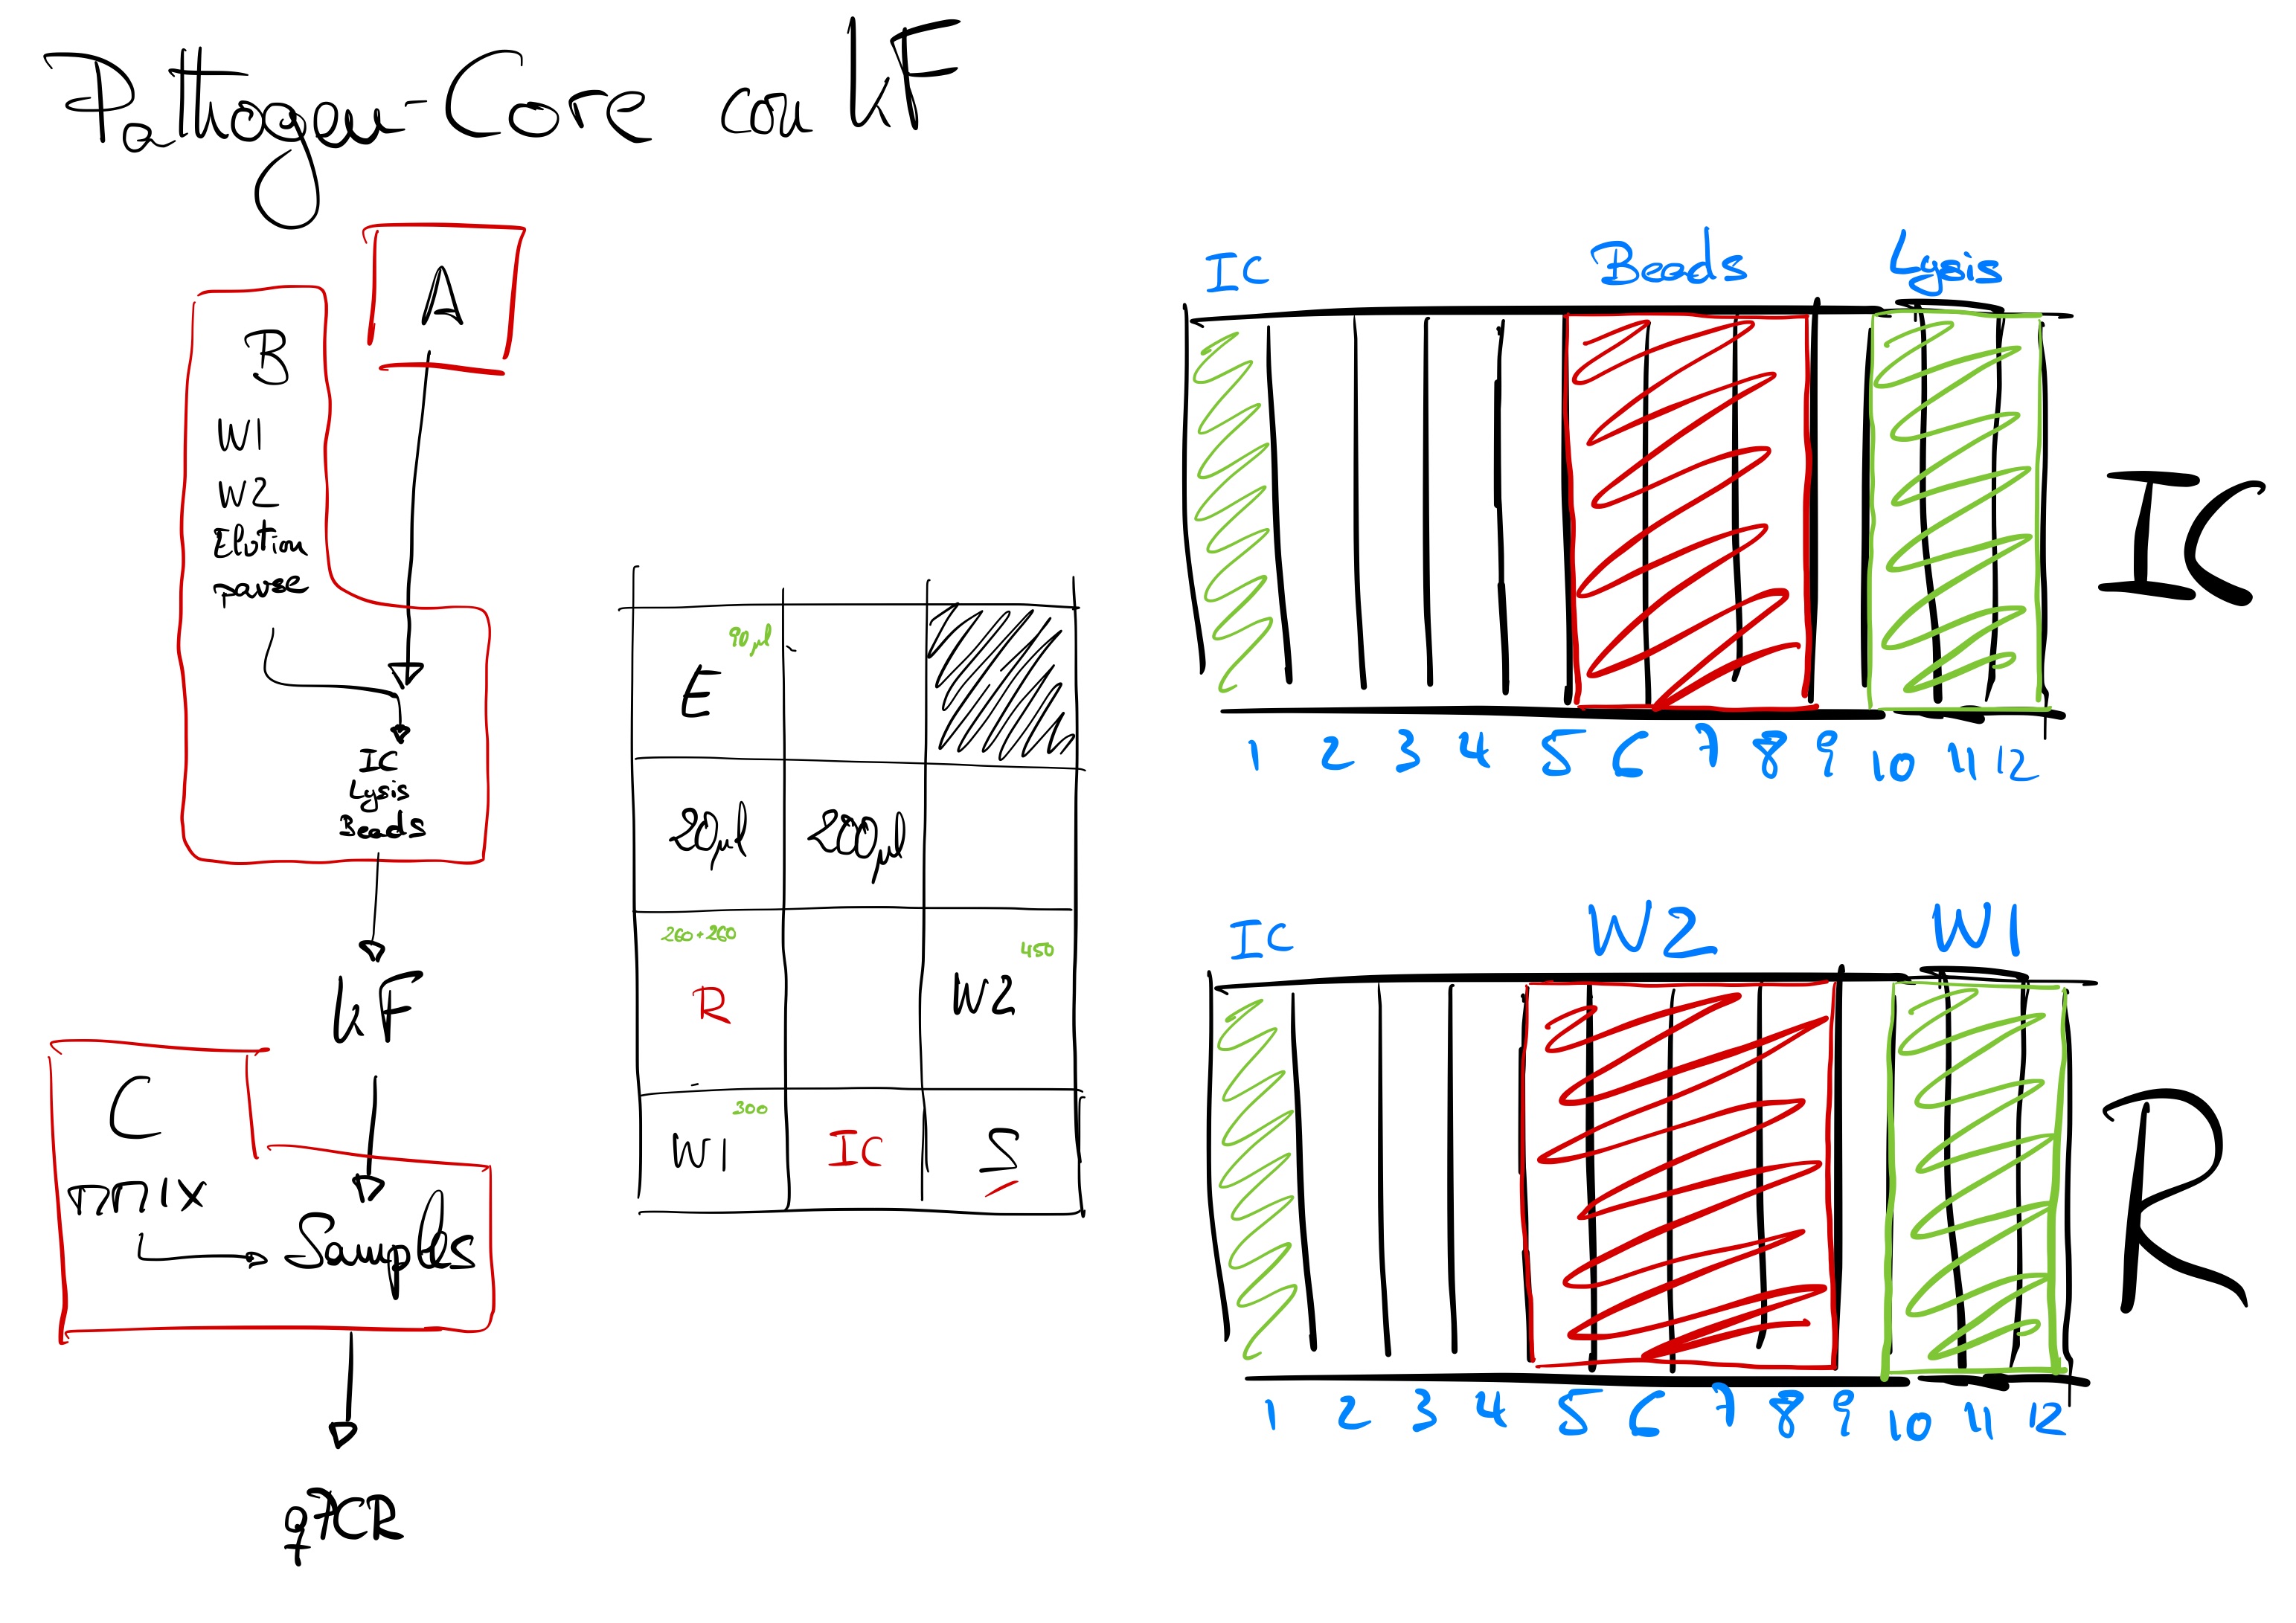 Pathogen-Core con KF
A
B
W1
W2
Elution
pause
IC
Lysis
Beads
KF
C
mmix
Samples
qPCR
90 µl
E
20 µl 200 µl
260+260 450
R W2
300
W1 IC S
IC Beads Lysis
IC
1 2 3 4 5 6 7 8 9 10 11 12
IC W2 W1
R
1 2 3 4 5 6 7 8 9 10 11 12